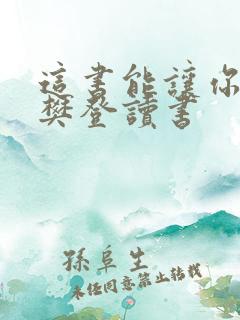 這書能讓你
樊登讀書
孫阜生
未經同意禁止轉載